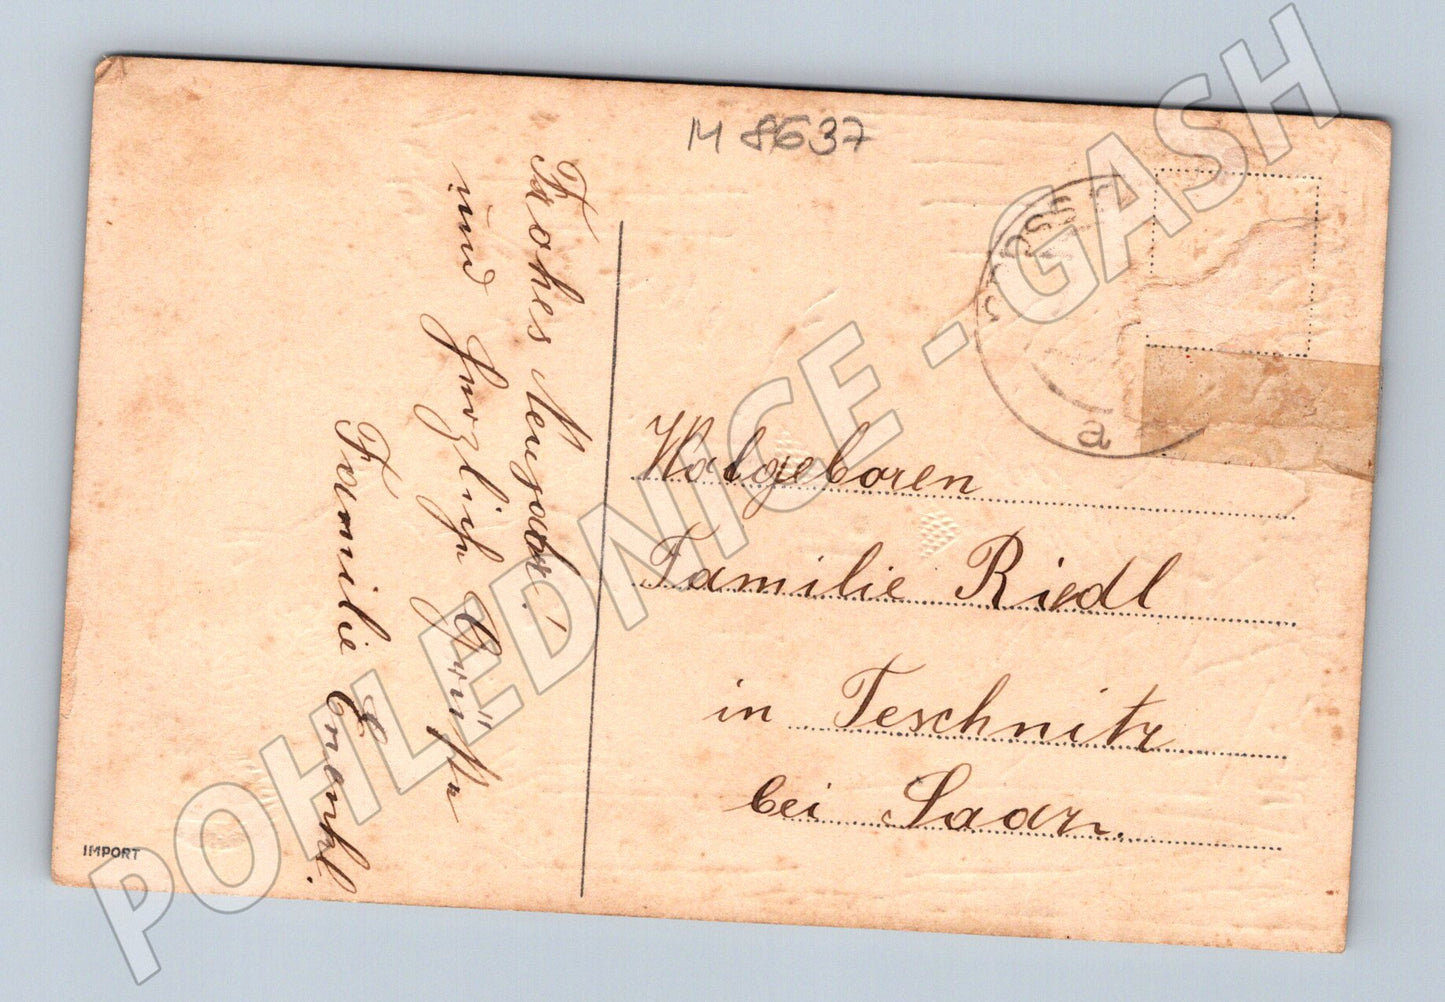 M 8637
Frohes Neujahr!
und herzliche Grüße
Familie
Wolgeboren
Familie Riedl
in Teschnitz
bei Saaz.
a
IMPORT
POHLEDNICE - GASH